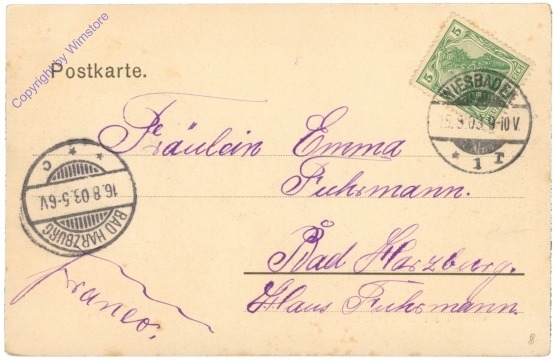 Copyright by Wimstore
Postkarte.
5 5
WIESBADEN
15.8.03.9-10V.
* 1 r
Fräulein Emma
Fuhrmann.
Bad Harzburg.
Haus Fuhrmann.
franco.
* * c
16.8.03.5-6V.
BAD HARZBURG
8